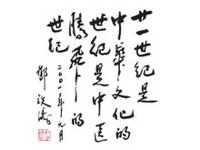 廿一世纪是
中華文化的
世纪是中医
腾飞的
世纪
二〇〇一年元月
邓铁涛